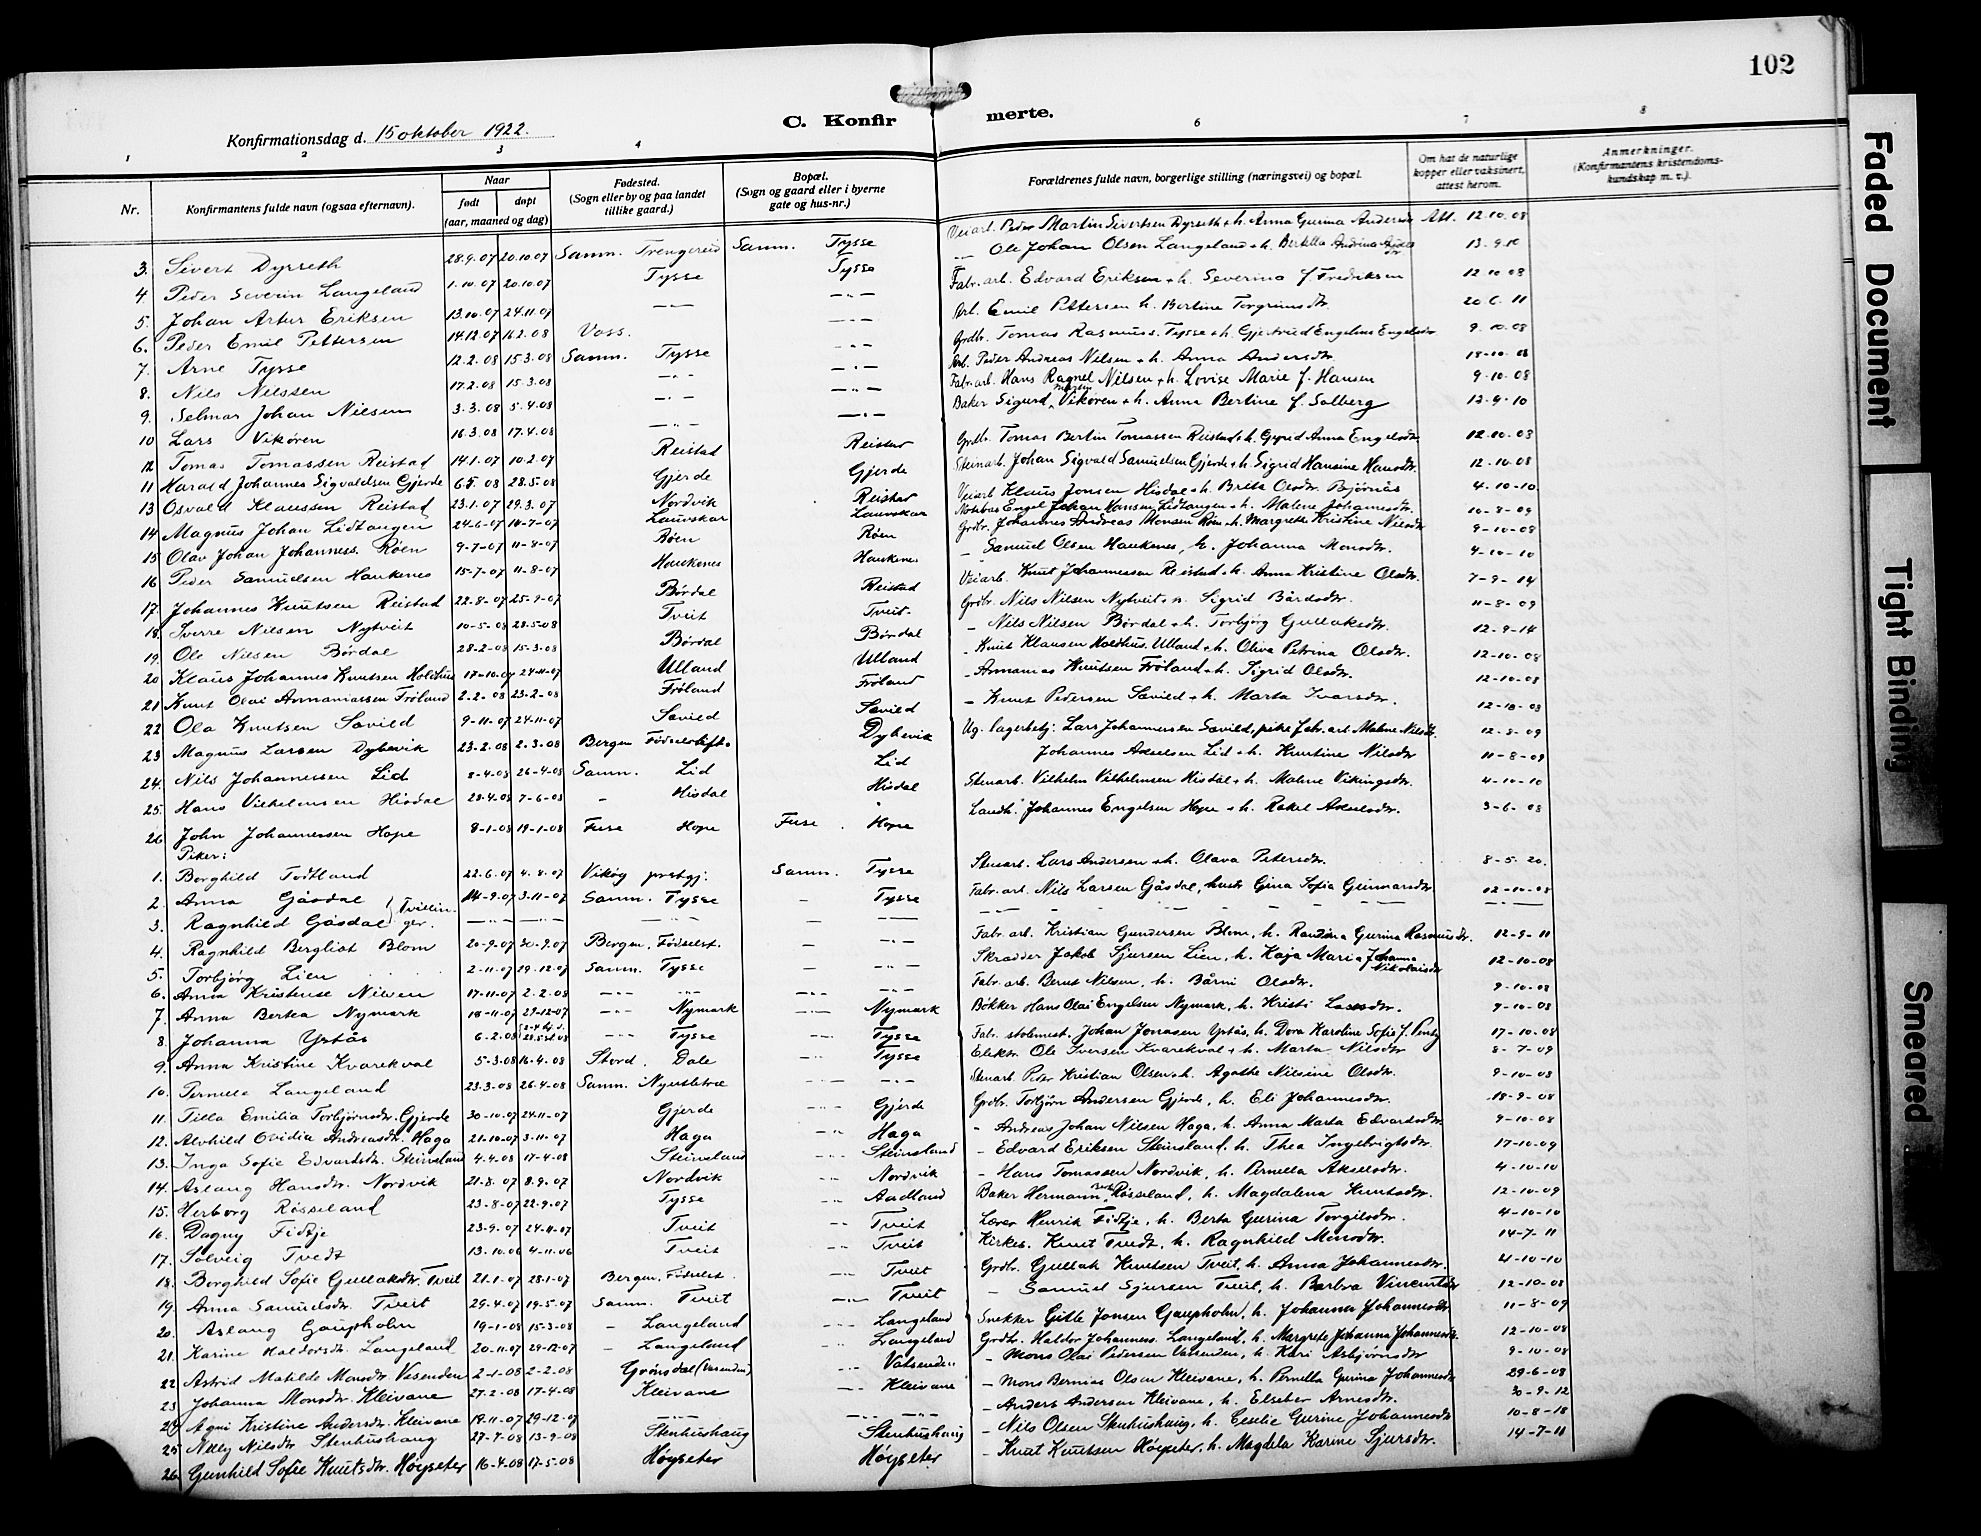 102
C. Konfirmerte.
Konfirmationsdag d. 15 oktober 1922.
1 2 3 4 6 7 8
Nr. Konfirmantens fulde navn (ogsaa efternavn). Naar født døpt (aar, maaned og dag) Fødested. (Sogn eller by og paa landet tillike gaard.) Bopæl. (Sogn og gaard eller i byerne gate og hus-nr.) Forældrenes fulde navn, borgerlige stilling (næringsvei) og bopæl. Om hat de naturlige kopper eller vaksinert, attest herom. Anmerkninger. (Konfirmantens kristendoms-kundskap m. v.).
3. Sivert Dyrseth 28.9.07 20.10.07 Samn. Trengereid Samn. Tysse Veiarb. Peder Martin Sivertsen Dyrseth + h. Anna Gurina Andersdr. Att. 12.10.08
4. Peder Severin Langeland 1.10.07 20.10.07 Tysse Tysse Ole Johan Olsen Langeland + h. Bertella Andrina 13-9.10
5. Johan Artur Eriksen 13.10.07 24.11.07 —„— —„— Fabr. arb. Edvard Eriksen + h. Severina f. Fredriksen 12.10.08
6. Peder Emil Pettersen 14.12.07 16.2.08 Voss. —„— Arb. Emil Pettersen h. Bertine Torgrimsdr. 20.6.11
7. Arne Tysse 12.2.08 15.3.08 Samn. Tysse —„— Grdbr. Tomas Rasmuss. Tysse + h. Gjertrud Engelina Engelsdr 9.10.08
8. Nils Nilssen 17.2.08 15.3.08 —„— —„— Arb. Peder Andreas Nilsen + h. Anna Andersdr. 18-10.08
9. Selmar Johan Nilsen 3.3.08 5.4.08 —„— —„— Fabr. arb. Hans Ragnel Nilsen + h. Lovise Marie f. Hansen 9-10.08
10 Lars Vikøren 16.3.08 17.4.08 —„— —„— Baker Sigurd Martin Vikøren + h. Anna Bertine f. Solberg 12-9.10
12 Tomas Tomassen Reistad 14.1.07 10.2.07 Reistad Reistad Grdbr. Tomas Bertin Tomassen Reistad + h. Gyrid Anna Engelsdr. 12.10.08
11 Harald Johannes Sigvaldsen Gjerde 6.5.08 28.5.08 Gjerde Gjerde Steinarb. Johan Sigvald Samuelsen Gjerde + h. Sigrid Hansine Hansdr. 12.10.08
13 Osvald Klaussen Reistad 23.1.07 29.3.07 Nordvik Reistad Veiarb. Klaus Jonsen Hisdal + h. Brita Olsdr. Bjørnås 4.10-10
14 Magnus Johan Lidtangen 24-6-07 14-7-07 Lauvskar Lauvskar Notebas Engel Johan Hansen Lidtangen + h. Malene Johannesdr. 10-8-09
15 Olav Johan Johanness. Røen 9-7-07 11-8-07 Røen Røen Grdbr. Johannes Andreas Monsen Røen + h. Margrete Kristine Nilsdr. 9-10-08
16 Peder Samuelsen Haukenes 15-7-07 11-8-07 Haukenes Haukenes – Samuel Olsen Haukenes, h. Johanna Monsdr. 4-10-10
17. Johannes Knutsen Reistad 22-8-07 25-9-07 Børdal Reistad Veiarb. Knut Johannessen Reistad + h. Anna Kristine Olsdr. 7-9-14
18. Sverre Nilsen Nytveit 10-5-08 28-5-08 Tveit Tveit Grdbr. Nils Nilsen Nytveit + h. Sigrid Bårdsdr. 11-8-09
19. Ole Nilsen Børdal 28-2-08 15-3-08 Børdal Børdal – Nils Nilsen Børdal + h. Torbjørg Gullaksdr. 12-9-14
20 Klaus Johannes Knutsen Holdhus 17-10-07 24-11-07 Ulland Ulland – Knut Klausen Holdhus. Ulland + h. Oliva Petrina Olsdr. 12-10-08
21 Knut Olai Annaniassen Frøland 2-2-08 23-2-08 Frøland Frøland – Annanias Knutsen Frøland + h. Sigrid Olsdr. 12-10-08
22 Ola Knutsen Sævild 9-11-07 24-11-07 Sævild Sævild – Knut Pedersen Sævild + h. Marta Ivarsdr. 12-10-08
23 Magnus Larsen Dyhevik 23-2.08 2-3-08 Bergen Fødselsstift. Dyhevik Ug. lagerbetj. Lars Johannessen Sævild, pike fabr. arb. Malene Nilsdr. 12-8-09
24. Nils Johannessen Lid 8-4-08 26-4-08 Samn. Lid Lid Johannes Akselsen Lid + h. Kristine Nilsdr 11-8-09
25. Hans Vilhelmsen Hisdal 28-4-08 7-6-08 – Hisdal Hisdal Stenarb. Vilhelm Vilhelmsen Hisdal + h. Malene Vikingsdr. 4-10-10
26 John Johannessen Hope 8-1-08 19-1-08 Fuse Hope Fuse Hope Landh. Johannes Engelsen Hope + h. Rakel Akselsdr. 3-6.08
Piker:
1. Borghild Todtland 22-6.07 4-8.07 Vikøy prestgj. Samn. Tysse Stenarb. Lars Andersen + h. Olava Petersdr. 8-5.20.
2. Anna Gåsdal } Tvillin- 14-9-07 3-11-07 Samn. Tysse – Tysse Fabr. arb. Nils Larsen Gåsdal, hustr. Gina Sofia Gunnarsdr. 12-10-08
3. Ragnhild Gåsdal ger. —„— —„— —„— —„—
4. Ragnhild Bergliot Blom 20-9-07 30-9.07 Bergen, Fødselsst. – —„— Fabr. arb. Kristian Gundersen Blom, h. Randina Gurina Rasmusdr. 12-9-11
5. Torbjørg Lien 2-11-07 29-12-07 Samn. Tysse – —„— Skrædder Jakob Sjursen Lien, h. Kaja Maria Johanna Nikolaisdr 12-10-08
6. Anna Kristense Nilsen 17-11-07 2.2.08 —„— —„— —„— —„— Fabr. arb. Bernt Nilsen, h. Bårni Olsdr. 9-10-08
7. Anna Bertea Nymark 18-11-07 29-12-07 —„— Nymark —„— Nymark Bøkker Hans Olai Engelsen Nymark, h. Kristi Larsdr. 9-10-08
8. Johanna Ystås 6-2.08 —„— Tysse —„— Tysse Fabr. stolemest. Johan Jonassen Ystås, h. Dora Karoline Sofie f. 17-10-08
9. Anna Kristine Kvarekval 5-3-08 16-4-08 Stord. Dale —„— Tysse Elektr. Ole Iversen Kvarekval + h. Marta Nilsdr. 8-7-09
10. Pernella Langeland 23.3-08 26-4-08 Samn. —„— —„— Stenarb. Peder Kristian Olsen + h. Agathe Nilsine Olsdr. 9-10-08
11. Tilla Emilia Torbjørnsdr. Gjerde 30-10.07 24-11-07 Gjerde —„— Gjerde Grdbr. Torbjørn Andersen Gjerde, h. Eli Johannesdr. 18-9-08
12. Alvhild Ovidia Andreasdr. Haga 21-10-07 3-11-07 Haga —„— Haga – Andreas Johan Nilsen Haga, h. Anna Marta Edvardsdr. 9-10-08
13. Inga Sofie Edvardsdr. Steinsland 4.4.08 17-4-08 Steinsland —„— Steinsland – Edvard Eriksen Steinsland, h. Thea Ingebrigtsdr. 17-10-09
14. Aslaug Hansdr. Nordvik 21-8-07 8-9-07 Nordvik —„— Nordvik – Hans Tomassen Nordvik, h. Pernella Akselsdr. 4-10-10
15. Herborg Røsseland 23-8-07 22-9-07 Tysse —„— Aadland Baker Hermann Røsseland, h. Magdalena Knutsdr. 12-10-09
16. Dagny Fidtje 23-9.07 24-11-07 Tveit —„— Tveit Lærer Henrik Fidtje, h. Berta Gurina Torgilsdr. 4-10-10
17. Solveig Tvedt 13-10.06 4-11.06 Tveit —„— Tveit Kirkes. Knut Tvedt, h. Ragnhild Monsdr. 14-7-11
18. Borghild Sofie Gullaksdr. Tveit 21-1-07 28-1-07 Bergen, Fødselsst. —„— Tveit Grdbr. Gullak Knutsen Tveit, h. Anna Johannesdr. 4-10-10
19. Anna Samuelsdr. Tveit 29-4-07 19-5-07 Samn. Tveit —„— Tveit – Samuel Sjursen Tveit, h. Barbra Vincentsdr 12-10-08
20. Aslaug Gaupholm 19-1-08 15-3-08 – Langeland – Langeland Snekker Gitle Jonsen Gaupholm, h. Johanna Johannesdr. 11-8-09
21. Karine Haldorsdr. Langeland 20-11-07 29-12-07 – Langeland —„— Langeland Grdbr. Haldor Johanness. Langeland, h. Margrete Johanna Johannesdr. 12-10-08
22 Astrid Matilde Monsdr. Vasenden 2-1-08 2-2-08 Grønsdal (Vasenden) —„— Vatsenden – Mons Olai Pedersen Vassenden, h. Kari Asbjørnsdr 9-10-08
23 Johanna Monsdr. Kleivane 27-2-08 17-4-08 Kleivane —„— Kleivane – Mons Bernias Olsen Kleivane, h. Pernella Gurina Johannesdr 29-6-08
24 Agni Kristine Andersdr. Kleivane 19-11-07 29-12-07 —„— —„— —„— – Anders Andersen Kleivane, h. Elseber Arnesdr. 30-9-12
25 Nelly Nilsdr Stenhushaug 27-7-08 13-9-08 Stenhushaug Stenhushaug – Nils Olsen Stenhushaug, h. Cecelie Gurine Johannesdr 10-8-18
26 Gunhild Sofie Knutsdr. Høyseter 16-4-08 17-5-08 Høyseter Høyseter – Knut Knutsen Høyseter, h. Magdela Karine Sjursdr. 14-7-11
Faded Document
Tight Binding
Smeared